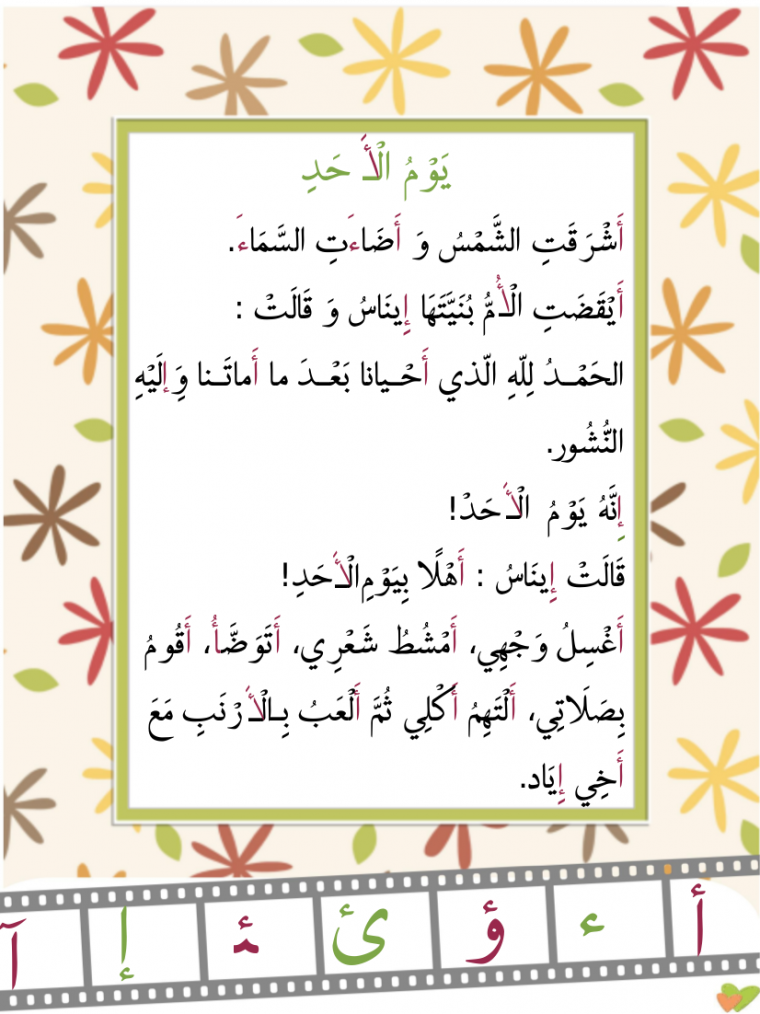 يَوْمُ الْأَحَدِ
أَشْرَقَتِ الشَّمْسُ وَ أَضَاءَتِ السَّمَاءَ.
أَيْقَضَتِ الْأُمُّ بُنَيَّتَهَا إِينَاسُ وَ قَالَتْ :
الحَمْـدُ لِلّهِ الّذي أَحْـيانا بَعْـدَ ما أَماتَـنا وَإِلَيْهِ
النُّشُور.
إِنَّهُ يَوْمُ الْأَحَدْ!
قَالَتْ إِينَاسُ : أَهْلًا بِيَوْمِ الْأَحَدِ!
أَغْسِلُ وَجْهِي، أَمْشُطُ شَعْرِي، أَتَوَضَّأُ، أَقُومُ
بِصَلَاتِي، أَلْتَهِمُ أَكْلِي ثُمَّ أَلْعَبُ بِـالْأَرْنَبِ مَعَ
أَخِي إِيَاد.
أ ء ؤ ئ ئـ إ آ